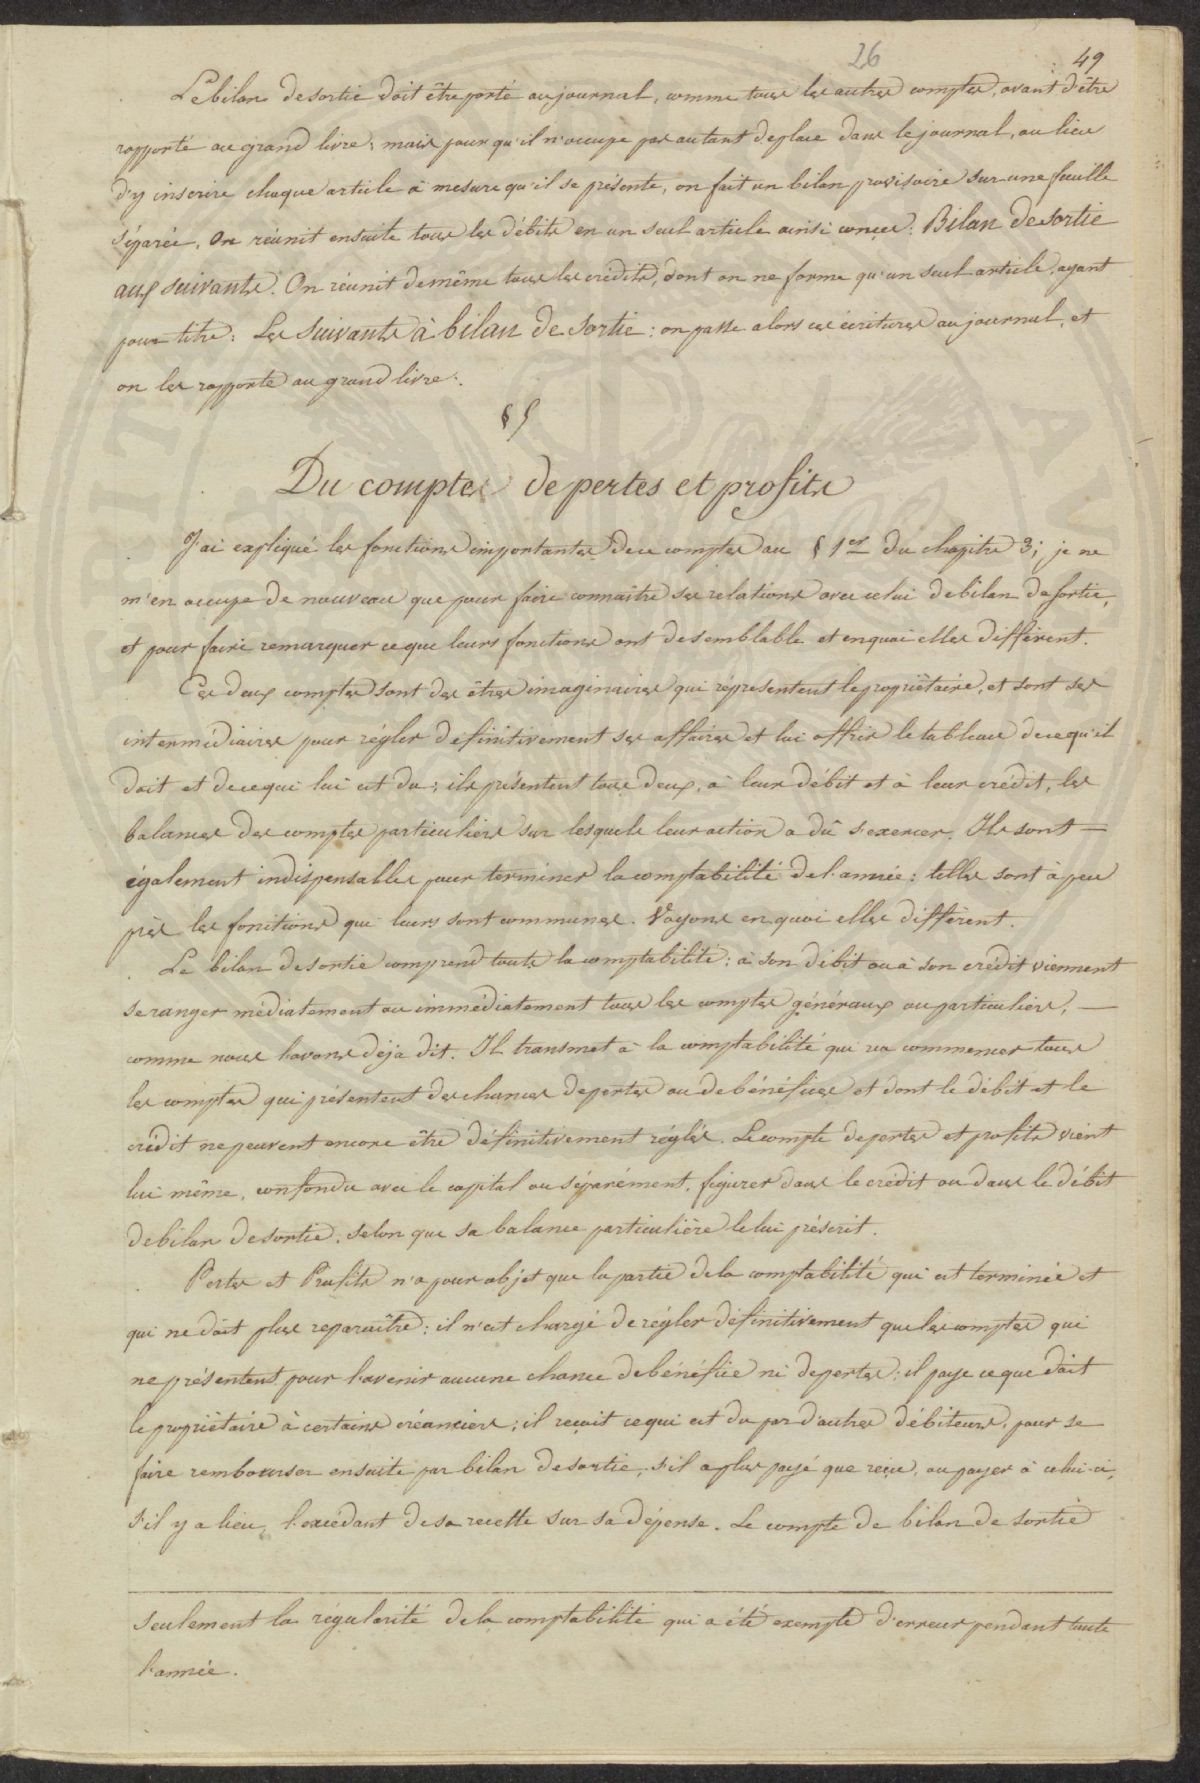 26
49
Le bilan de sortie doit être porté au journal, comme tous les autres comptes, avant d'être
rapporté au grand livre; mais pour qu'il n'occupe pas autant de place dans le journal, au lieu
d'y inscrire chaque article à mesure qu'il se présente, on fait un bilan provisoire sur une feuille
séparée. On réunit ensuite tous les débits en un seul article ainsi conçu: Bilan de sortie
aux suivants. On réunit de même tous les crédits, dont on ne forme qu'un seul article, ayant
pour titre: Les suivants à bilan de sortie: on passe alors ces écritures au journal, et
on les rapporte au grand livre.
§ 5
Du compte de pertes et profits
J'ai expliqué les fonctions importantes de ce compte au § 1er du chapitre 3; je ne
m'en occupe de nouveau que pour faire connaître ses relations avec celui de bilan de sortie,
et pour faire remarquer ce que leurs fonctions ont de semblable et en quoi elles diffèrent.
Ces deux comptes sont des êtres imaginaires qui représentent le propriétaire, et sont ses
intermédiaires pour régler définitivement ses affaires et lui offrir le tableau de ce qu'il
doit et de ce qui lui est du; ils présentent tous deux, à leur débit et à leur crédit, les
balances des comptes particuliers sur lesquels leur action a dû s'exercer. Ils sont —
également indispensables pour terminer la comptabilité de l'année: telles sont à peu
près les fonctions qui leurs sont communes. Voyons en quoi elles diffèrent.
Le bilan de sortie comprend toute la comptabilité: à son débit ou à son crédit viennent
se ranger médiatement ou immédiatement tous les comptes généraux ou particuliers, —
comme nous l'avons déjà dit. Il transmet à la comptabilité qui va commencer tous
les comptes qui présentent des chances de pertes ou de bénéfices et dont le débit et le
crédit ne peuvent encore être définitivement réglés. Le compte de pertes et profits vient
lui même, confondu avec le capital ou séparément, figurer dans le crédit ou dans le débit
de bilan de sortie, selon que sa balance particulière le lui préscrit.
Pertes et Profits n'a pour objet que la partie de la comptabilité qui est terminée et
qui ne doit plus reparaître; il n'est chargé de régler définitivement que les comptes qui
ne présentent pour l'avenir aucune chance de bénéfice ni de pertes; il paye ce que doit
le propriétaire à certains créanciers; il reçoit ce qui est du par d'autres débiteurs, pour se
faire rembourser ensuite par bilan de sortie, s'il a plus payé que reçu, ou payer à celui-ci,
s'il y a lieu, l'excédant de sa recette sur sa dépense. Le compte de bilan de sortie
seulement la régularité de la comptabilité qui a été exempte d'erreur pendant toute
l'année.